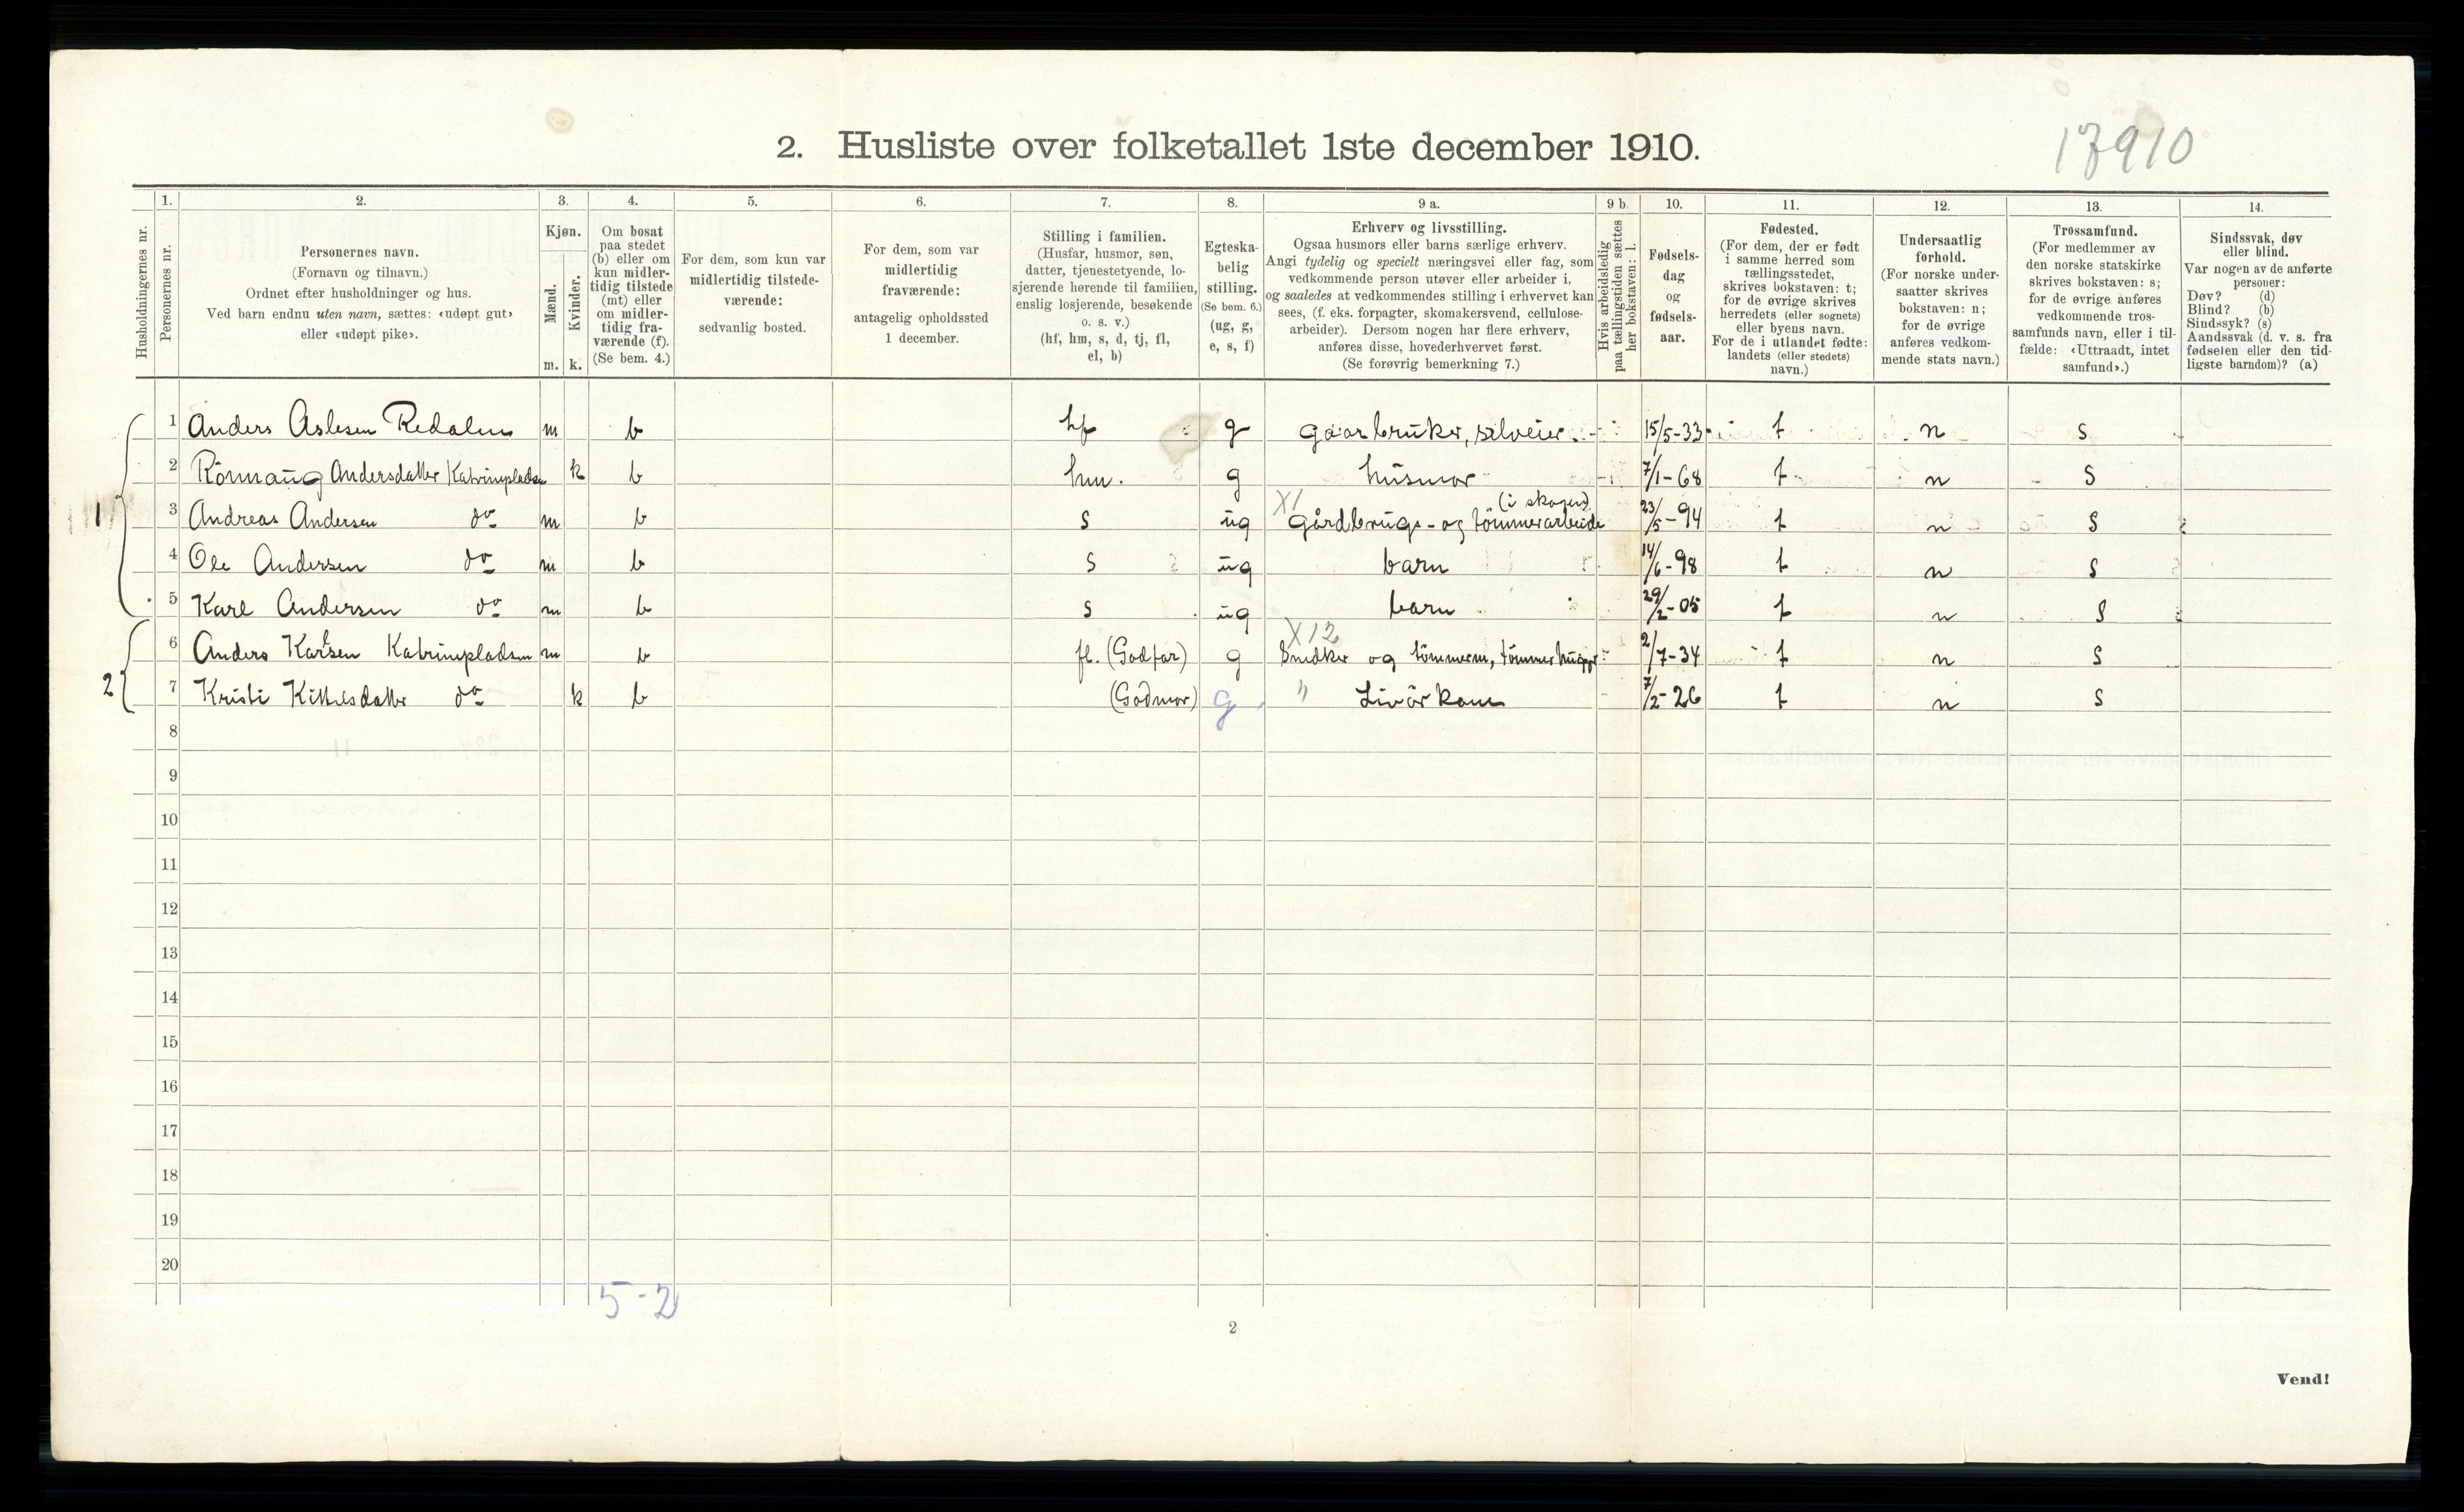 17910
2. Husliste over folketallet 1ste december 1910.
1. 2. 3. 4. 5. 6. 7. 8. 9 a. 9 b. 10. 11. 12. 13. 14.
Husholdningernes nr.
Personernes nr.
Personernes navn.
(Fornavn og tilnavn.)
Ordnet efter husholdninger og hus.
Ved barn endnu uten navn, sættes: «udøpt gut»
eller «udøpt pike».
Kjøn.
Mænd.
Kvinder.
m. k.
Om bosat
paa stedet
(b) eller om
kun midler-
tidig tilstede
(mt) eller
om midler-
tidig fra-
værende (f).
(Se bem. 4.)
For dem, som kun var
midlertidig tilstede-
værende:
sedvanlig bosted.
For dem, som var
midlertidig
fraværende:
antagelig opholdssted
1 december.
Stilling i familien.
(Husfar, husmor, søn,
datter, tjenestetyende, lo-
sjerende hørende til familien,
enslig losjerende, besøkende
o. s. v.)
(hf, hm, s, d, tj, fl,
el, b)
Egteska-
belig
stilling.
(Se bem. 6.)
(ug, g,
e, s, f)
Erhverv og livsstilling.
Ogsaa husmors eller barns særlige erhverv.
Angi tydelig og specielt næringsvei eller fag, som
vedkommende person utøver eller arbeider i,
og saaledes at vedkommendes stilling i erhvervet kan
sees, (f. eks. forpagter, skomakersvend, cellulose-
arbeider). Dersom nogen har flere erhverv,
anføres disse, hovederhvervet først.
(Se forøvrig bemerkning 7.)
Hvis arbeidsledig
paa tællingstiden sættes
her bokstaven: l.
Fødsels-
dag
og
fødsels-
aar.
Fødested.
(For dem, der er født
i samme herred som
tællingsstedet,
skrives bokstaven: t;
for de øvrige skrives
herredets (eller sognets)
eller byens navn.
For de i utlandet fødte:
landets (eller stedets)
navn.)
Undersaatlig
forhold.
(For norske under-
saatter skrives
bokstaven: n;
for de øvrige
anføres vedkom-
mende stats navn.)
Trossamfund.
(For medlemmer av
den norske statskirke
skrives bokstaven: s;
for de øvrige anføres
vedkommende tros-
samfunds navn, eller i til-
fælde: «Uttraadt, intet
samfund».)
Sindssvak, døv
eller blind.
Var nogen av de anførte
personer:
Døv? (d)
Blind? (b)
Sindssyk? (s)
Aandssvak (d. v. s. fra
fødselen eller den tid-
ligste barndom)? (a)
1 1 Anders Aslesen Redalen m b hf g gaarbruker, selveier. 15/5-33 t n s
2 Rönnaug Andersdatter Katrinepladsen k b hm. g husmor 7/1-68 t n s
3 Andreas Andersen do m b s ug X1 Gårdbrugs- og tömmerarbeide (i skogen) 23/5-94 t n s
4 Ole Andersen do m b s ug barn 14/6-98 t n s
5 Karl Andersen do m b s ug barn 29/2-05 t n s
2 6 Anders Karlsen Katrinepladsen m b fl. (Godfar) g X12 Snedker og tömmerm, tömmerhugger 2/7-34 t n s
7 Kristi Kittelsdatter do k b (Godmor) g " Livörkone 7/2-26 t n s
8
9
10
11
12
13
14
15
16
17
18
19
20
5-2
2
Vend!